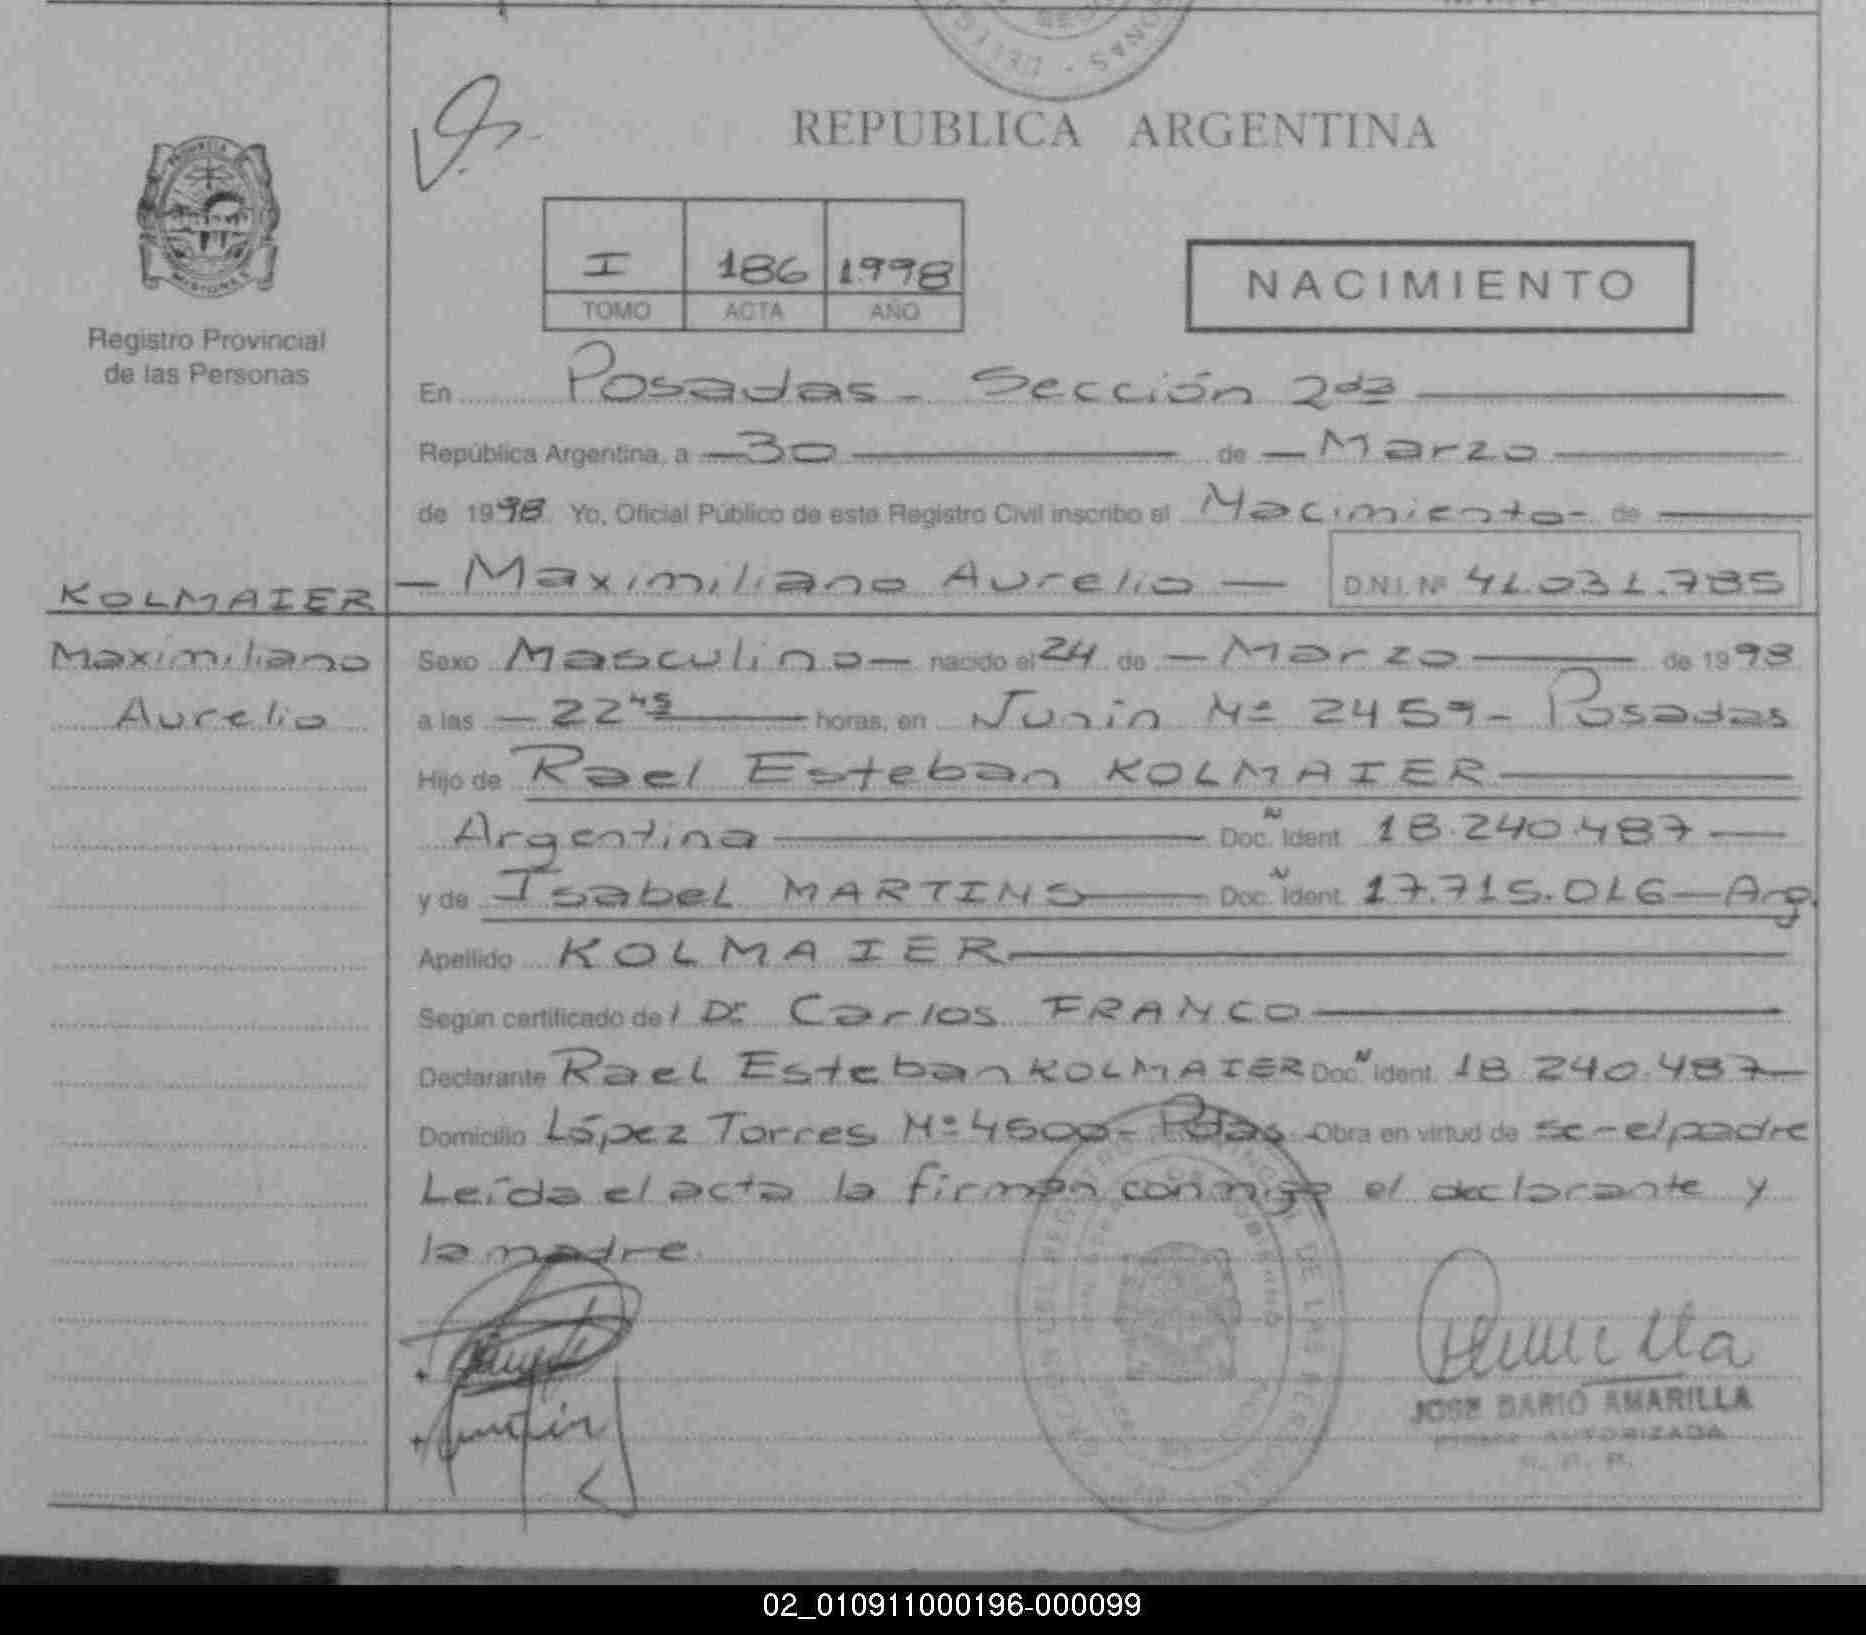 REPUBLICA ARGENTINA
I 186 1998
TOMO ACTA AÑO
NACIMIENTO
Registro Provincial
de las Personas
En Posadas - Sección 2da
República Argentina, a 30 de Marzo
de 1998 Yo, Oficial Público de este Registro Civil inscribo el Nacimiento - de
Maximiliano Aurelio D.N.I. Nº 41.031.785
KOLMAIER
Maximiliano
Aurelio
Sexo Masculino nacido el 24 de Marzo de 1998
a las 22 45 horas, en Junín Nº 2459 - Posadas
Hijo de Rael Esteban KOLMAIER
Argentina Doc. N Ident. 18.240.487
y de Isabel MARTINS Doc. N Ident. 17.715.016 - Arg.
Apellido KOLMAIER
Según certificado del Dr. Carlos FRANCO
Declarante Rael Esteban KOLMAIER Doc. N Ident. 18.240.487
Domicilio López Torres Nº 4500 - Pdas Obra en virtud de se - el padre
Leída el acta la firman conmigo el declarante y
la madre.
JOSE DARIO AMARILLA
FIRMA AUTORIZADA
02_010911000196-000099